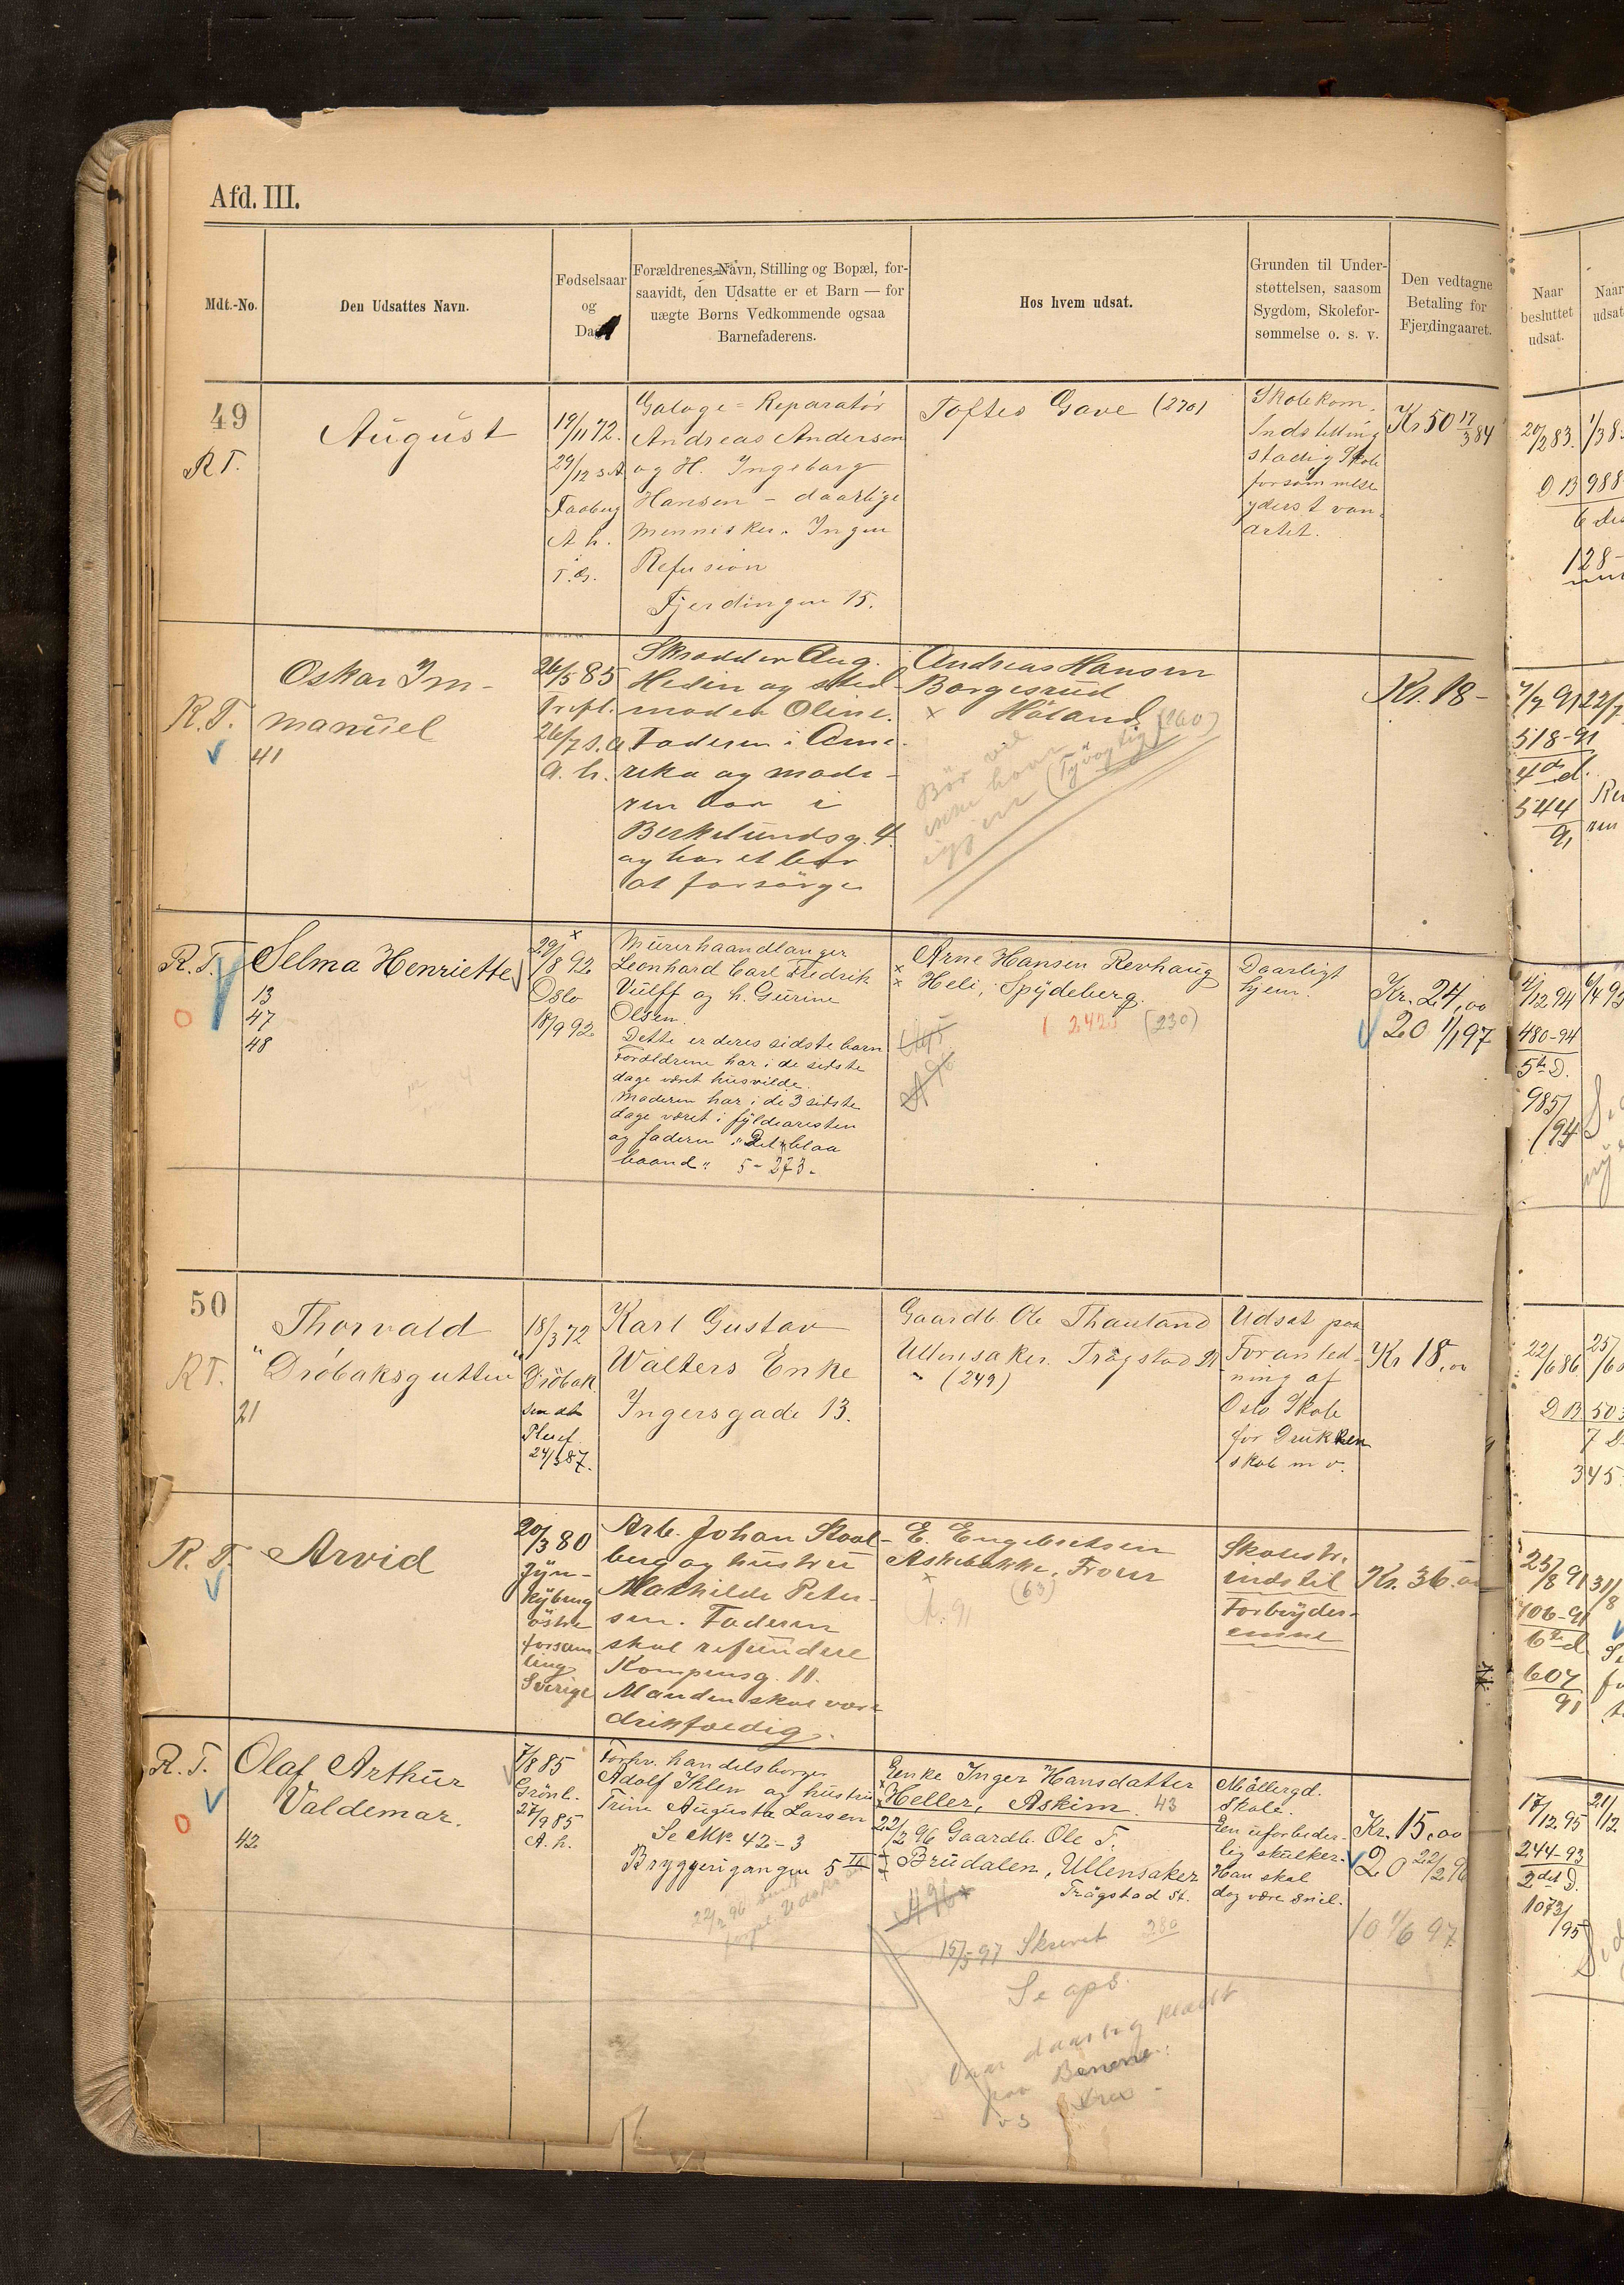 Afd. III.
Mdt.-No.
Den Udsattes Navn.
Fødselsaar
og
Forældrenes Navn, Stilling og Bopæl, for-
saavidt, den Udsatte er et Barn — for
uægte Børns Vedkommende ogsaa
Barnefaderens.
Hos hvem udsat.
Grunden til Under-
støttelsen, saasom
Sygdom, Skolefor-
sømmelse o. s. v.
Den vedtagne
Betaling for
Fjerdingaaret.
Naar
besluttet
udsat.
Naar
udsat
49
R T.
August
19/11 72.
29/12 s.A.
Faaberg
A. h.
Galoge = Reparatör
Andreas Andersen
og H. Ingeborg
Hansen – daarlige
mennesker. Ingen
Refusion
Fjerdingen 15.
Toftes Gave (270)
Skolekom.
Indstilling
stadig Skole
forsömmelse
yderst van-
artet.
Kr 50 17/3 84
20/2 83.
D B 988
128-
R. T.
Oskar Im-
manuel
41
26/5 85
Trefl.
26/7 s.a.
a. h.
Skrædder Aug.
Hedin og sted-
moder Oline.
Faderen i Ame-
rika og mode-
ren bor i
Berkelundsg. 4.
og har et barn
at forsörge
Andreas Hansen
Borgesrud
x Höland (260)
Bör vel
ikke have
(Tyvagtig)
Kr. 18-
7/7 91
22/7
518-91
4de d.
544/91
R. T.
Selma Henriette
13
47
48
29/8 92
Oslo
18/9 92
Murerhaandlanger
Leonhard Carl Fredrik
Vulff og h. Gurine
Olsen.
Dette er deres sidste barn
Forældrene har i de sidste
dage været husvilde.
Moderen har i de 3 sidste
dage været i fyldearesten
og faderen i "Det blaa
baand". 5 - 273-
Arne Hansen Revhaug
Heli, Spydeberg.
242 (230)
Daarligt
hjem.
Kr. 24,00
20 1/1 97
11/12 94
480-94
5te D.
985/94
50
RT.
Thorvald
"Dröbaksgutten"
21
18/3 72
Dröbak
24/3 87.
Karl Gustav
Walters Enke
Ingersgade 13.
Gaardb. Ole Thauland
Ullensaker. Trögstad St
(249)
Udsat paa
Foranled-
ning af
Oslo Skole
for Drukken
skab m v.
Kr 18,00
22/6 86
25/6
D B 503
345.
R. T.
Arvid
20/3 80
Jyn-
kyberg
östre
forsam
ling
Sverige
Arb. Johan Skool-
berg og hustru
Mathilde Peter-
sen. Faderen
skal refundere
Kompensg. 11.
Manden skal være
drikfældig.
E. Engebretsen
Askebakke, Froen
(63)
Skolestr.
indstil
Forbryder-
emne
Kr. 36.00
25/8 91
31/8
106-91
6te d.
607/91
R. T.
Olaf Arthur
Valdemar.
42
7/8 85
Grönl.
27/9 85
A. h.
Forhv. handelsborger
Adolf Ihlen og hustru
Trine Augusta Larsen
Se Mk. 42-3
Bryggerigangen 5 II
Enke Inger Hansdatter
Heller, Askim. 43
22/2 96 Gaardb. Ole T.
Brudalen, Ullensaker
Trögstad St.
15/5 97 Skrevet 280
Se ops.
Var daarlig klædt
paa Benene
Möllergd.
Skole.
En uforbeder-
lig skulker.
Han skal
dog være snil.
Kr. 15,00
20 22/2 96
10 1/6 97
17/12 95
21/12
244-93
2det D.
1073/95